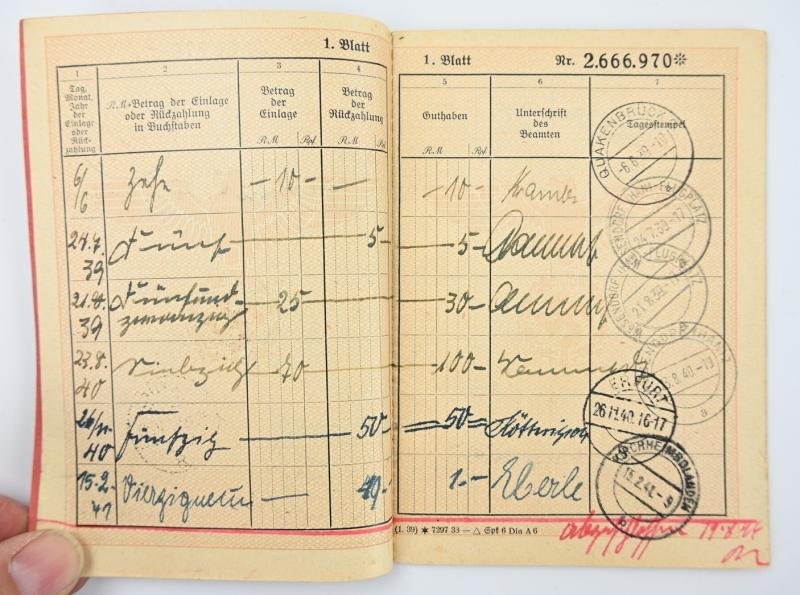 1. Blatt
1 2 3 4
Tag, Monat, Jahr der Einlage oder Rückzahlung
R.M-Betrag der Einlage oder Rückzahlung in Buchstaben
Betrag der Einlage
Betrag der Rückzahlung
RM Rpf RM
6/6 Zehn — 10 — —
24.7. 39 Fünf — 5 —
21.8. 39 Fünfundzwanzig 25 —
23.8. 40 Siebzig 70
26/11 40 Fünfzig — 50 —
15.2. 41 Vierzigneun — 49 -
1. Blatt Nr. 2.666.970*
5 6 7
Guthaben
Unterschrift des Beamten
Tagesstempel
RM Rpf
10 —
5 —
30 —
100 —
50 =
1.— Eberle
QUAKENBRÜCK
-6.6.39.-19
WESENDORF FLUGPLATZ
24.7.39.-17
WESENDORF FLUGPLATZ
21.8.39.-17
.8.40.-19
a
ERFURT
26.11.40.16-17
KIRCHHEIMBOLANDEN
15.2.41.-9
b
(1. 39) ✶ 7297 33 — △ Spk 6 Din A 6